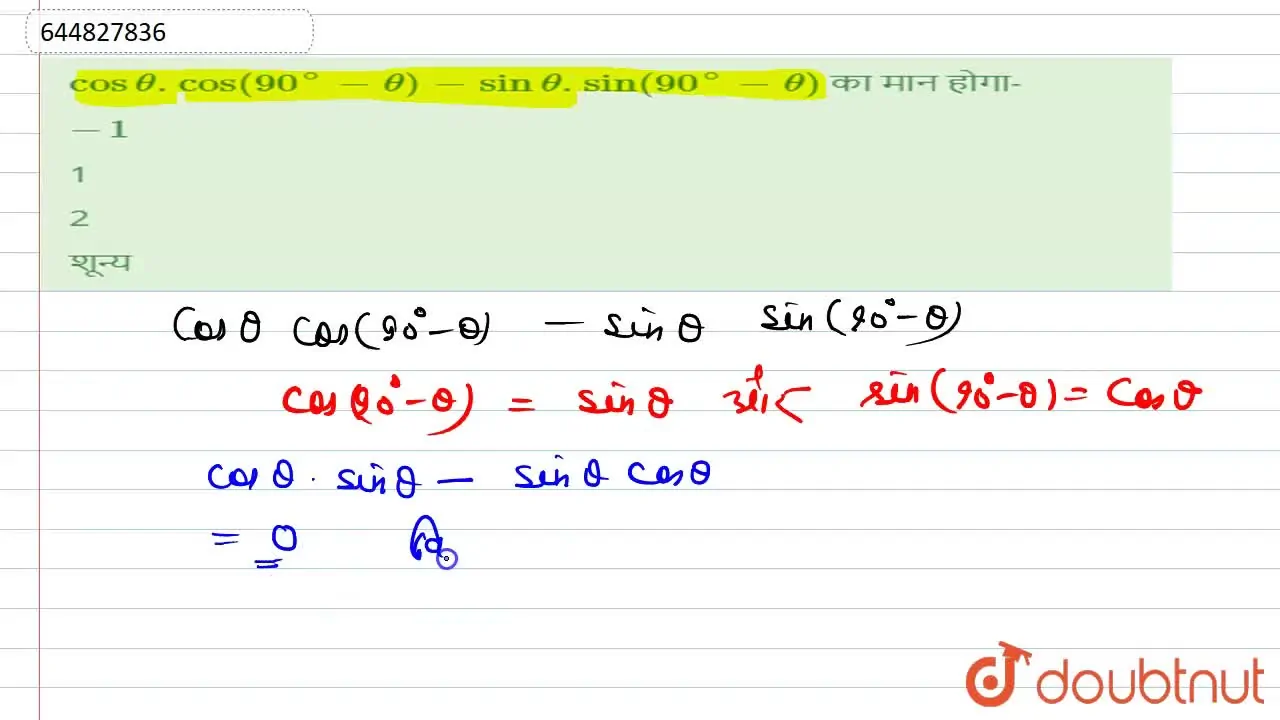 644827836
cos θ. cos(90° − θ) − sin θ. sin(90° − θ) का मान होगा-
− 1
1
2
शून्य
cos θ cos(90° − θ) − sin θ sin(90° − θ)
cos(90° − θ) = sin θ और sin(90° − θ) = cos θ
cos θ . sin θ − sin θ cos θ
= 0
doubtnut